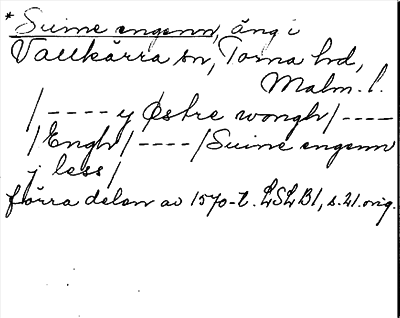 * Suine engenn, äng i
Vallkärra sn, Torna hd,
Malm. l.
/ - - - - y Østre wongh / - - - -
/ Engh / - - - - / Suine engenn
j less /
förra delen av 1570-t. LSLB1, s. 21. orig.